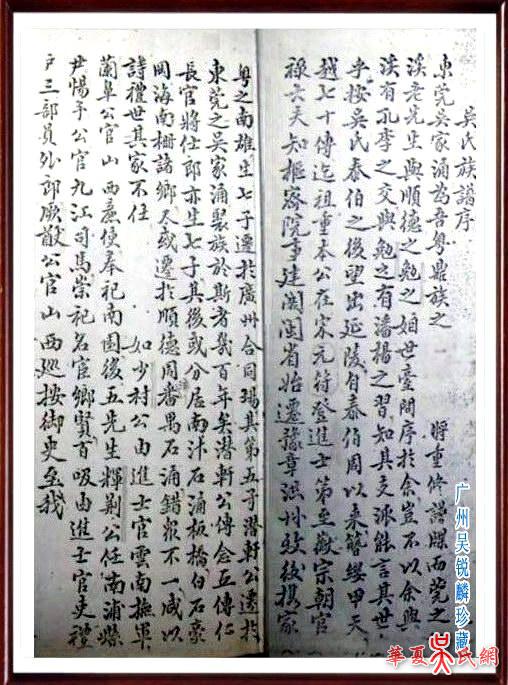 吴氏族譜序
東莞吴家涌為吾粤鼎族之 將重修譜牒而莞之
溪老先生與順德之勉之姻世臺問序於余豈不以余與
溪有孔李之交與勉之有潘楊之習知其支派能言其世
乎按吴氏泰伯之後望出延陵自泰伯周以来簪纓甲天
越七十傳迄祖重本公在宋元符登進士第至徽宗朝官
禄大夫知樞密院事建閩省始遷豫章洪州致後携家
粤之南雄生七子遷於廣州合同塲其第五子潜軒公遷於
東莞之吴家涌聚族於斯者幾百年矣潜軒公傳念五傳仁
長官將仕郎亦生七子其後或分居南汴石涌板橋白石豪
岡海南栅諸鄉又或遷於順德周番禺石涌錯處不一咸以
詩禮世其家不任 如少村公由進士官雲南撫軍
蘭阜公官山西亷使奉祀南園後五先生輝荆公任南浦蝶
尹惕予公官九江司馬崇祀名宦鄉賢百吸由進士官吏禮
户三部員外郎厥猷公官山西廵按御史至我
广州吴锐麟珍藏
華夏吴氏網